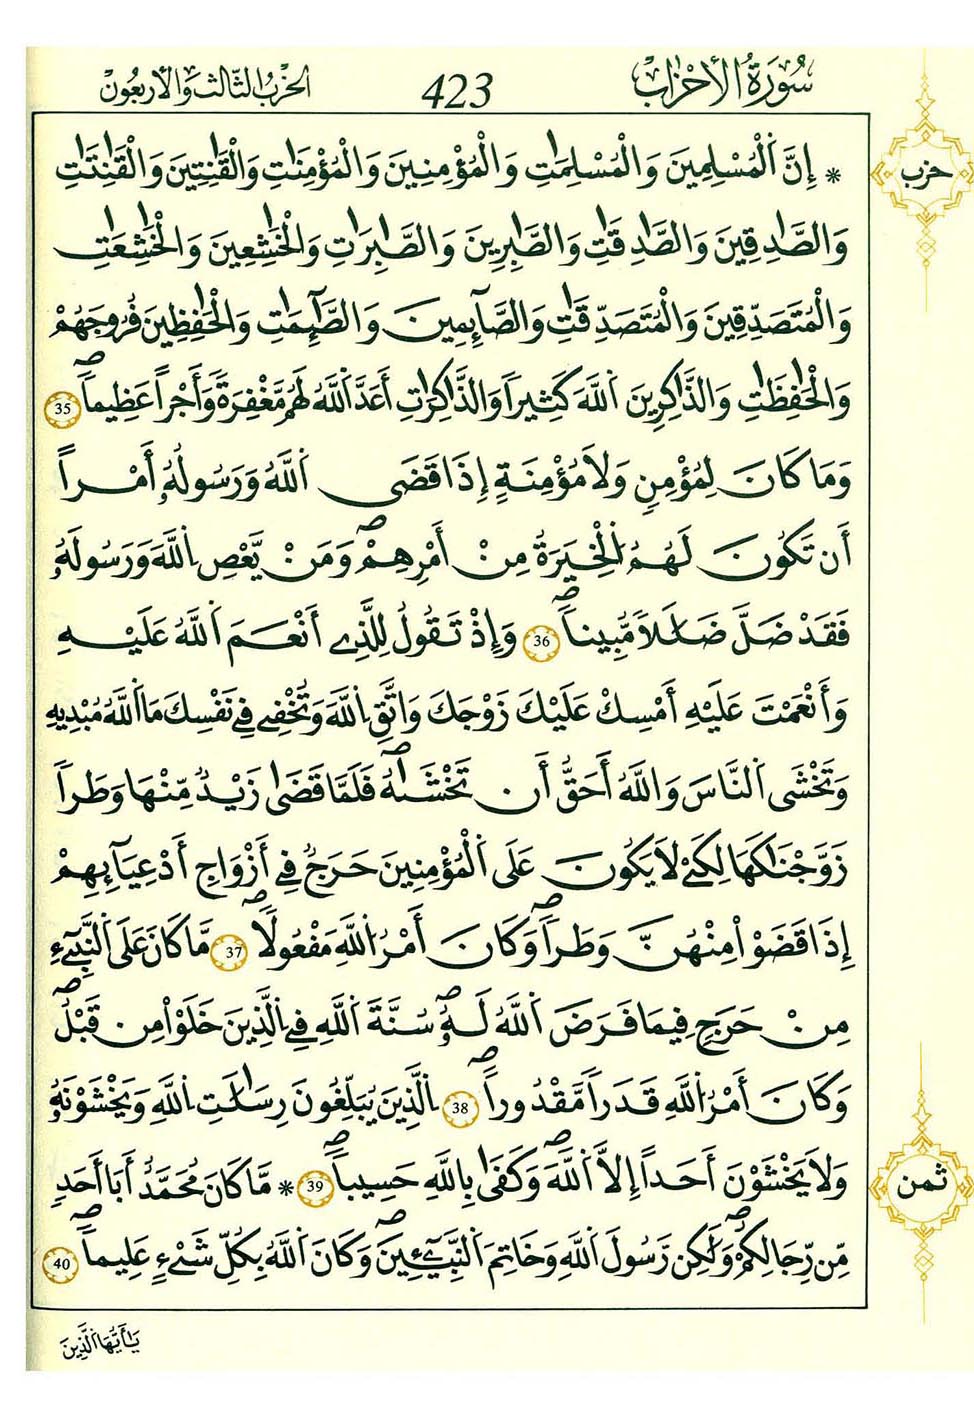 سُورَةُ الأَحْزَابِ 423 الحِزْبُ الثَّالِثُ وَالأَرْبَعُونَ
* إِنَّ اَ۬لْمُسْلِمِينَ وَالْمُسْلِمَٰتِ وَالْمُؤْمِنِينَ وَالْمُؤْمِنَٰتِ وَالْقَٰنِتِينَ وَالْقَٰنِتَٰتِ
حزب
وَالصَّٰدِقِينَ وَالصَّٰدِقَٰتِ وَالصَّٰبِرِينَ وَالصَّٰبِرَٰتِ وَالْخَٰشِعِينَ وَالْخَٰشِعَٰتِ
وَالْمُتَصَدِّقِينَ وَالْمُتَصَدِّقَٰتِ وَالصَّٰٓئِمِينَ وَالصَّٰٓئِمَٰتِ وَالْحَٰفِظِينَ فُرُوجَهُمْ
وَالْحَٰفِظَٰتِ وَالذَّٰكِرِينَ اَ۬للَّهَ كَثِيراٗ وَالذَّٰكِرَٰتِ أَعَدَّ اَ۬للَّهُ لَهُم مَّغْفِرَةٗ وَأَجْراً عَظِيماٗۖ 35
وَمَا كَانَ لِمُؤْمِنٖ وَلَا مُؤْمِنَةٍ إِذَا قَضَى اَ۬للَّهُ وَرَسُولُهُۥٓ أَمْراً
أَن تَكُونَ لَهُمُ اُ۬لْخِيَرَةُ مِنْ أَمْرِهِمْۖ وَمَنْ يَّعْصِ اِ۬للَّهَ وَرَسُولَهُۥ
فَقَدْ ضَلَّ ضَلَٰلاٗ مُّبِيناٗۖ 36 وَإِذْ تَقُولُ لِلذِےٓ أَنْعَمَ اَ۬للَّهُ عَلَيْهِ
وَأَنْعَمْتَ عَلَيْهِ أَمْسِكْ عَلَيْكَ زَوْجَكَ وَاتَّقِ اِ۬للَّهَ وَتُخْفِے فِے نَفْسِكَ مَا اَ۬للَّهُ مُبْدِيهِ
وَتَخْشَى اَ۬لنَّاسَ وَاللَّهُ أَحَقُّ أَن تَخْشَىٰهُۖ فَلَمَّا قَضَىٰ زَيْدٞ مِّنْهَا وَطَراٗ
زَوَّجْنَٰكَهَا لِكَےْ لَا يَكُونَ عَلَى اَ۬لْمُؤْمِنِينَ حَرَجٞ فِےٓ أَزْوَٰجِ أَدْعِيَآئِهِمْ
إِذَا قَضَوْاْ مِنْهُنَّ وَطَراٗۖ وَكَانَ أَمْرُ اُ۬للَّهِ مَفْعُولاٗۖ 37 مَّا كَانَ عَلَى اَ۬لنَّبِےٓءِ
مِنْ حَرَجٖ فِيمَا فَرَضَ اَ۬للَّهُ لَهُۥۖ سُنَّةَ اَ۬للَّهِ فِے اِ۬لذِينَ خَلَوْاْ مِن قَبْلُۖ
وَكَانَ أَمْرُ اُ۬للَّهِ قَدَراٗ مَّقْدُوراًۖ 38 اِ۬لذِينَ يُبَلِّغُونَ رِسَٰلَٰتِ اِ۬للَّهِ وَيَخْشَوْنَهُۥ
وَلَا يَخْشَوْنَ أَحَداً إِلَّا اَ۬للَّهَۖ وَكَفَىٰ بِاللَّهِ حَسِيباٗۖ 39 * مَّا كَانَ مُحَمَّدٌ أَبَآ أَحَدٖ
ثمن
مِّن رِّجَالِكُمْۖ وَلَٰكِن رَّسُولَ اَ۬للَّهِ وَخَاتِمَ اَ۬لنَّبِيٓـِٕينَۖ وَكَانَ اَ۬للَّهُ بِكُلِّ شَےْءٍ عَلِيماٗۖ 40
يَٰٓأَيُّهَا اَ۬لذِينَ